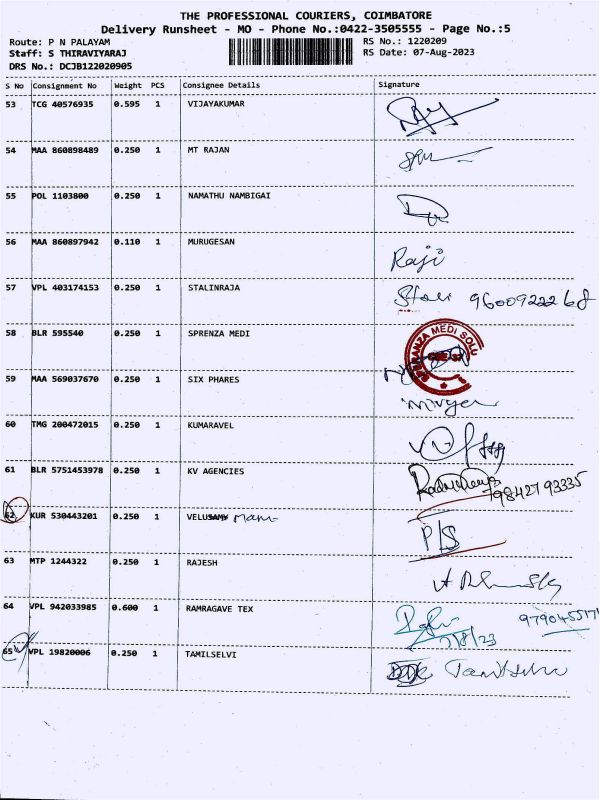 THE PROFESSIONAL COURIERS, COIMBATORE
Delivery Runsheet - MO - Phone No.:0422-3505555 - Page No.:5
Route: P N PALAYAM RS No.: 1220209
Staff: S THIRAVIYARAJ RS Date: 07-Aug-2023
DRS No.: DCJB122020905
S No Consignment No Weight PCS Consignee Details Signature
53 TCG 40576935 0.595 1 VIJAYAKUMAR
54 MAA 860898489 0.250 1 MT RAJAN
55 POL 1103800 0.250 1 NAMATHU NAMBIGAI
56 MAA 860897942 0.110 1 MURUGESAN Raji
57 VPL 403174153 0.250 1 STALINRAJA 9600922268
58 BLR 595540 0.250 1 SPRENZA MEDI SPERANZA MEDI SOLU
59 MAA 569037670 0.250 1 SIX PHARES
60 TMG 200472015 0.250 1 KUMARAVEL
61 BLR 5751453978 0.250 1 KV AGENCIES 9842793335
62 KUR 530443201 0.250 1 VELUSAMY P/S
63 MTP 1244322 0.250 1 RAJESH
64 VPL 942033985 0.600 1 RAMRAGAVE TEX 7/8/23
65 VPL 19820006 0.250 1 TAMILSELVI